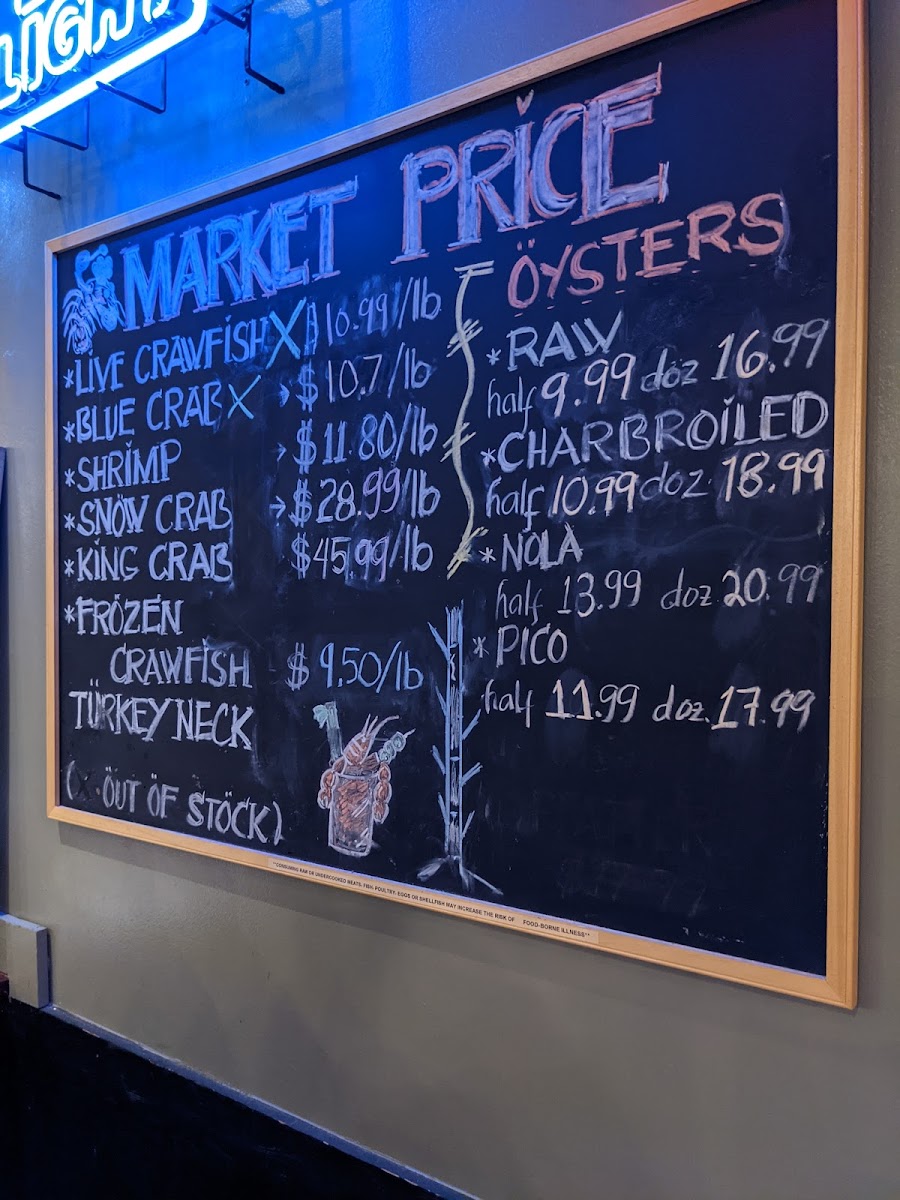 LIGHT
MARKET PRICE
*LIVE CRAWFISH X $10.99/lb
*BLUE CRAB X $10.7/lb
*SHRIMP $11.80/lb
*SNÖW CRAB $28.99/lb
*KING CRAB $45.99/lb
*FRÖZEN
CRAWFISH $9.50/lb
TÜRKEY NECK
(X ÖUT ÖF STÖCK)
ÖYSTERS
*RAW
half 9.99 doz 16.99
*CHARBROILED
half 10.99 doz 18.99
*NOLA
half 13.99 doz. 20.99
*PICO
half 11.99 doz. 17.99
**CONSUMING RAW OR UNDERCOOKED MEATS, FISH, POULTRY, EGGS OR SHELLFISH MAY INCREASE THE RISK OF FOOD-BORNE ILLNESS**